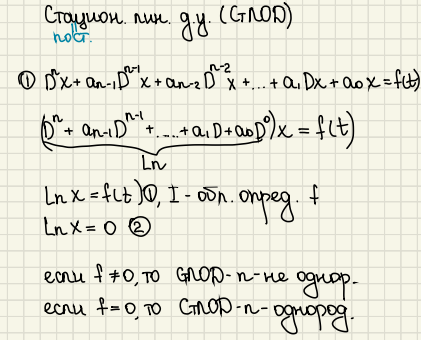 Стацион. лин. д.у. (СЛОД)
пост.
① Dⁿx + aₙ₋₁Dⁿ⁻¹x + aₙ₋₂Dⁿ⁻²x + ... + a₁Dx + a₀x = f(t)
(Dⁿ + aₙ₋₁Dⁿ⁻¹ + ..... + a₁D + a₀D⁰)x = f(t)
Lₙ
Lₙ x = f(t) ①, I - обл. опред. f
Lₙ x = 0 ②
если f ≠ 0, то СЛОД-n-не однор.
если f = 0, то СЛОД-n-однород.